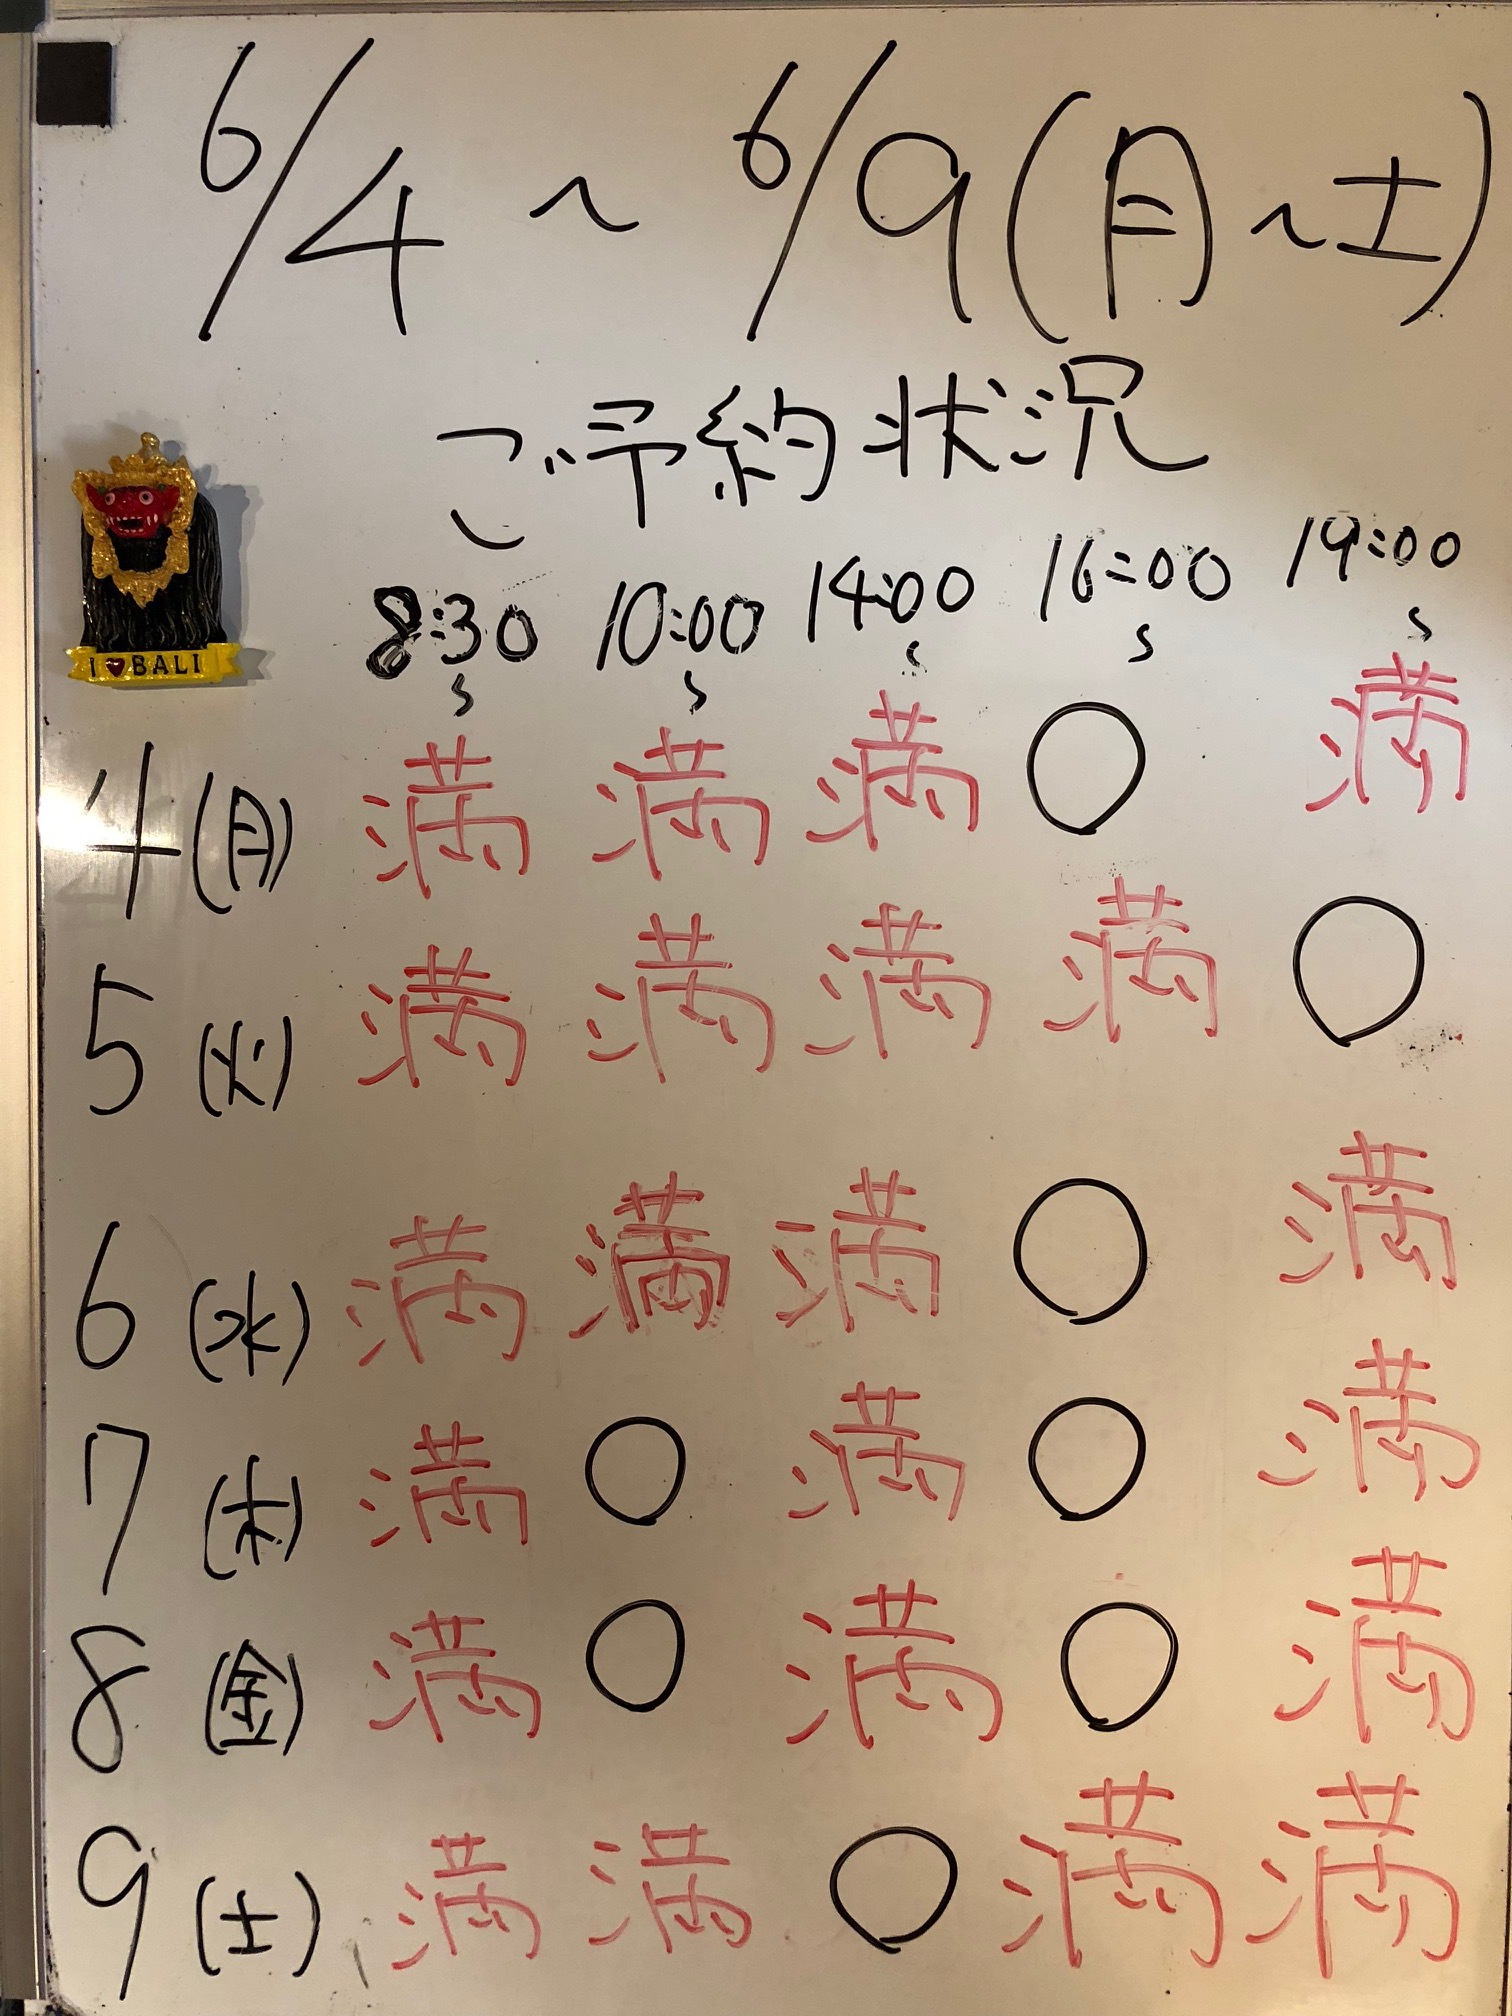 6/4 ～ 6/9 (月～土)
ご予約状況
8:30～ 10:00～ 14:00～ 16:00～ 19:00～
I ♥ BALI
4 (月) 満 満 満 ○ 満
5 (火) 満 満 満 満 ○
6 (水) 満 満 満 ○ 満
7 (木) 満 ○ 満 ○ 満
8 (金) 満 ○ 満 ○ 満
9 (土) 満 満 ○ 満 満